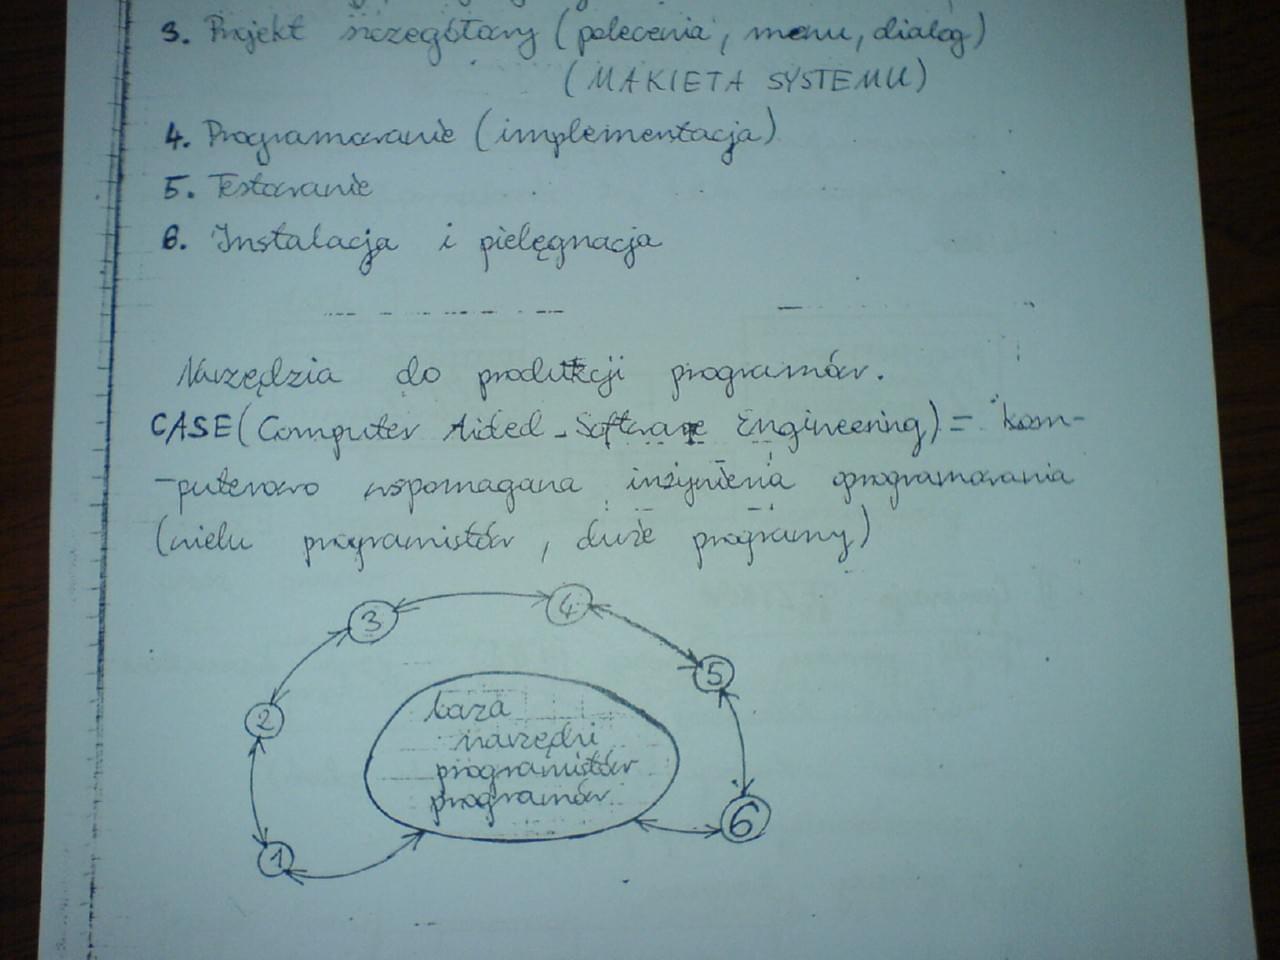 3. Projekt szczegółowy (polecenia, menu, dialog)
(MAKIETA SYSTEMU)
4. Programowanie (implementacja)
5. Testowanie
6. Instalacja i pielęgnacja
Narzędzia do produkcji programów.
CASE (Computer Aided Software Engineering) = kom-
-puterowo wspomagana inżynieria oprogramowania
(wielu programistów, duże programy)
3
4
5
2
baza
narzędzi
programistów
programów
6
1